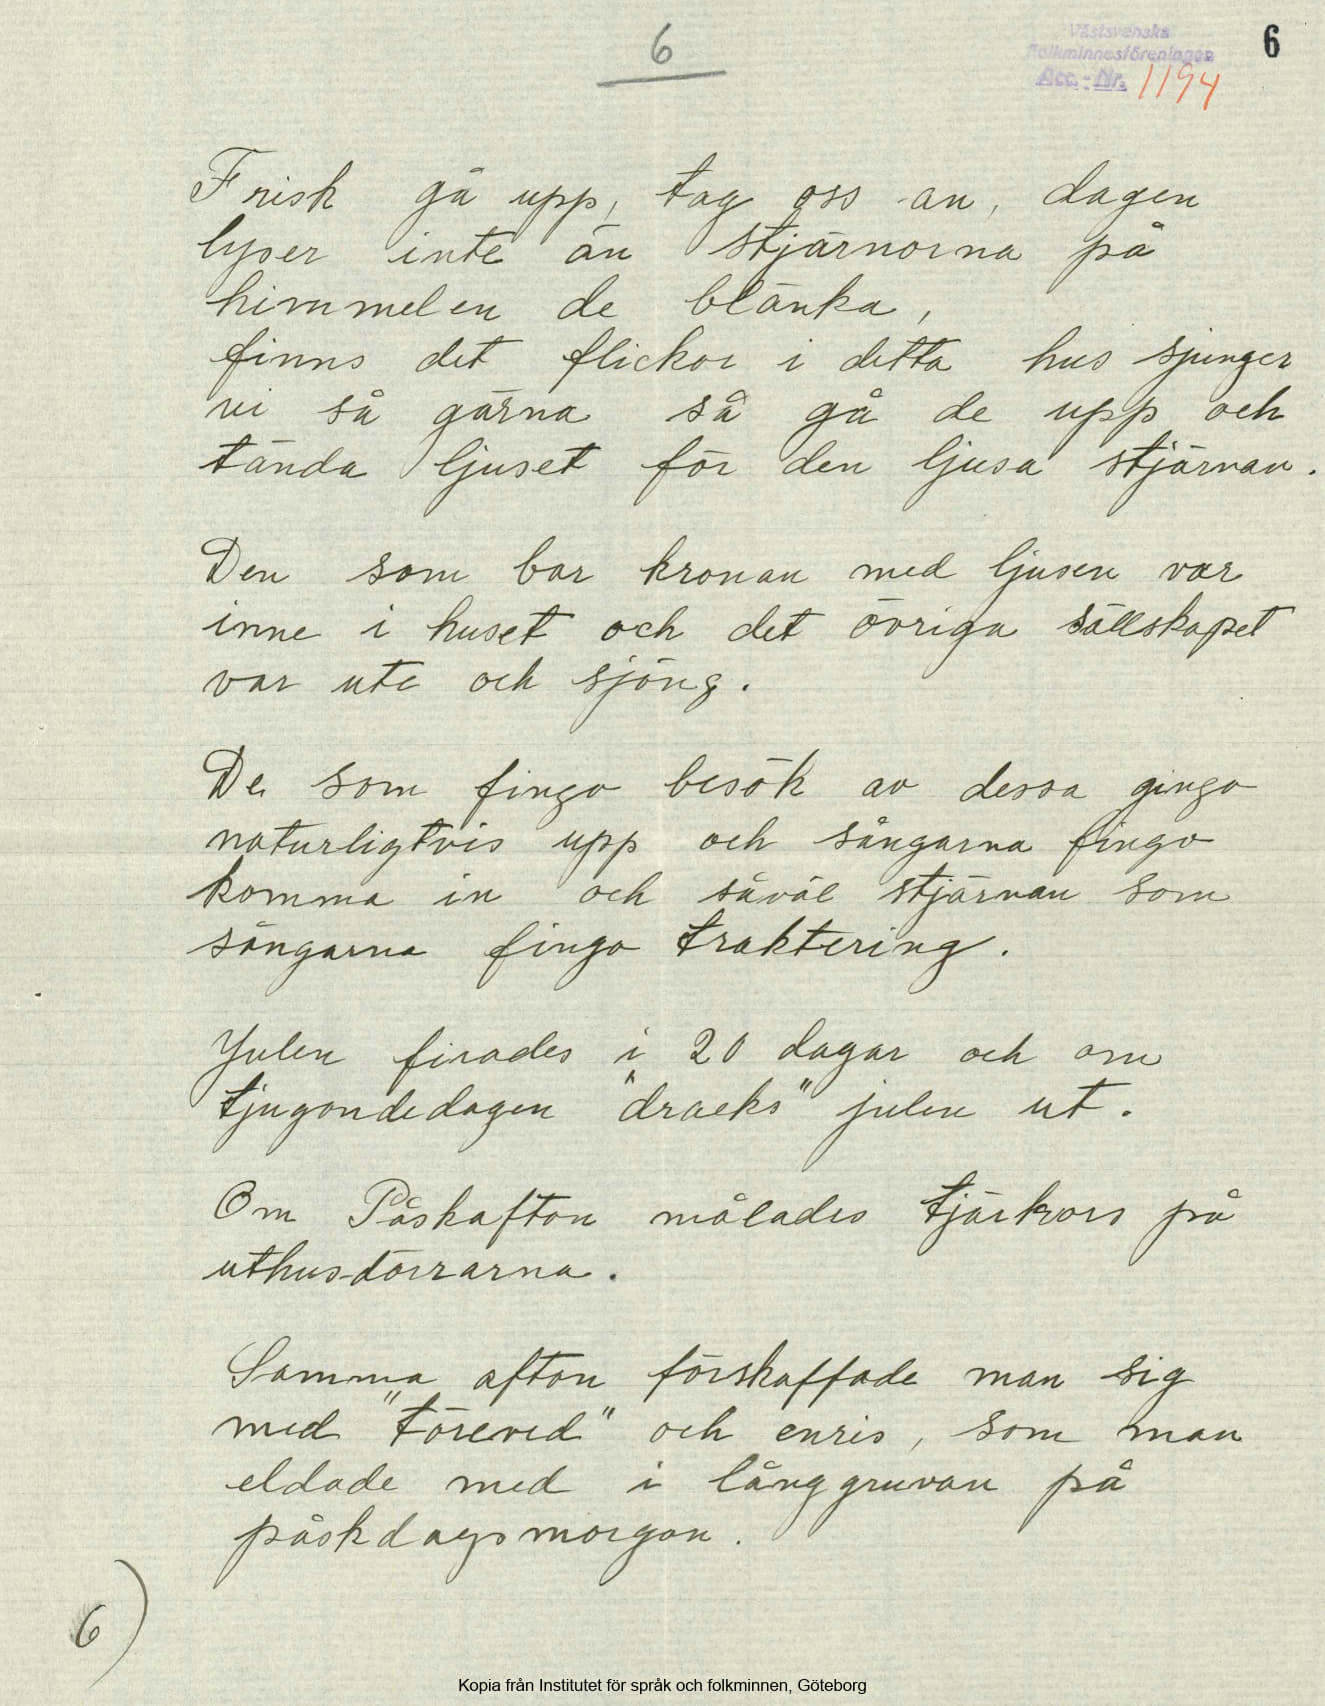 6
Västsvenska
Folkminnesföreningen
Acc.-Nr. 1194
6
Frisk gå upp, tag oss an, dagen
lyser inte än stjärnorna på
himmelen de blänka,
finns det flickor i detta hus sjunger
vi så gärna så gå de upp och
tända ljuset för den ljusa stjärnan.
Den som bar kronan med ljusen var
inne i huset och det övriga sällskapet
var ute och sjöng.
De som fingo besök av dessa gingo
naturligtvis upp och sångarna fingo
komma in och såväl stjärnan som
sångarna fingo traktering.
Julen firades i 20 dagar och om
tjugondedagen "dracks" julen ut.
Om Påskafton målades tjärkors på
uthusdörrarna.
Samma afton förskaffade man sig
med "töreved" och enris, som man
eldade med i långgruvan på
påskdagsmorgon.
6)
Kopia från Institutet för språk och folkminnen, Göteborg